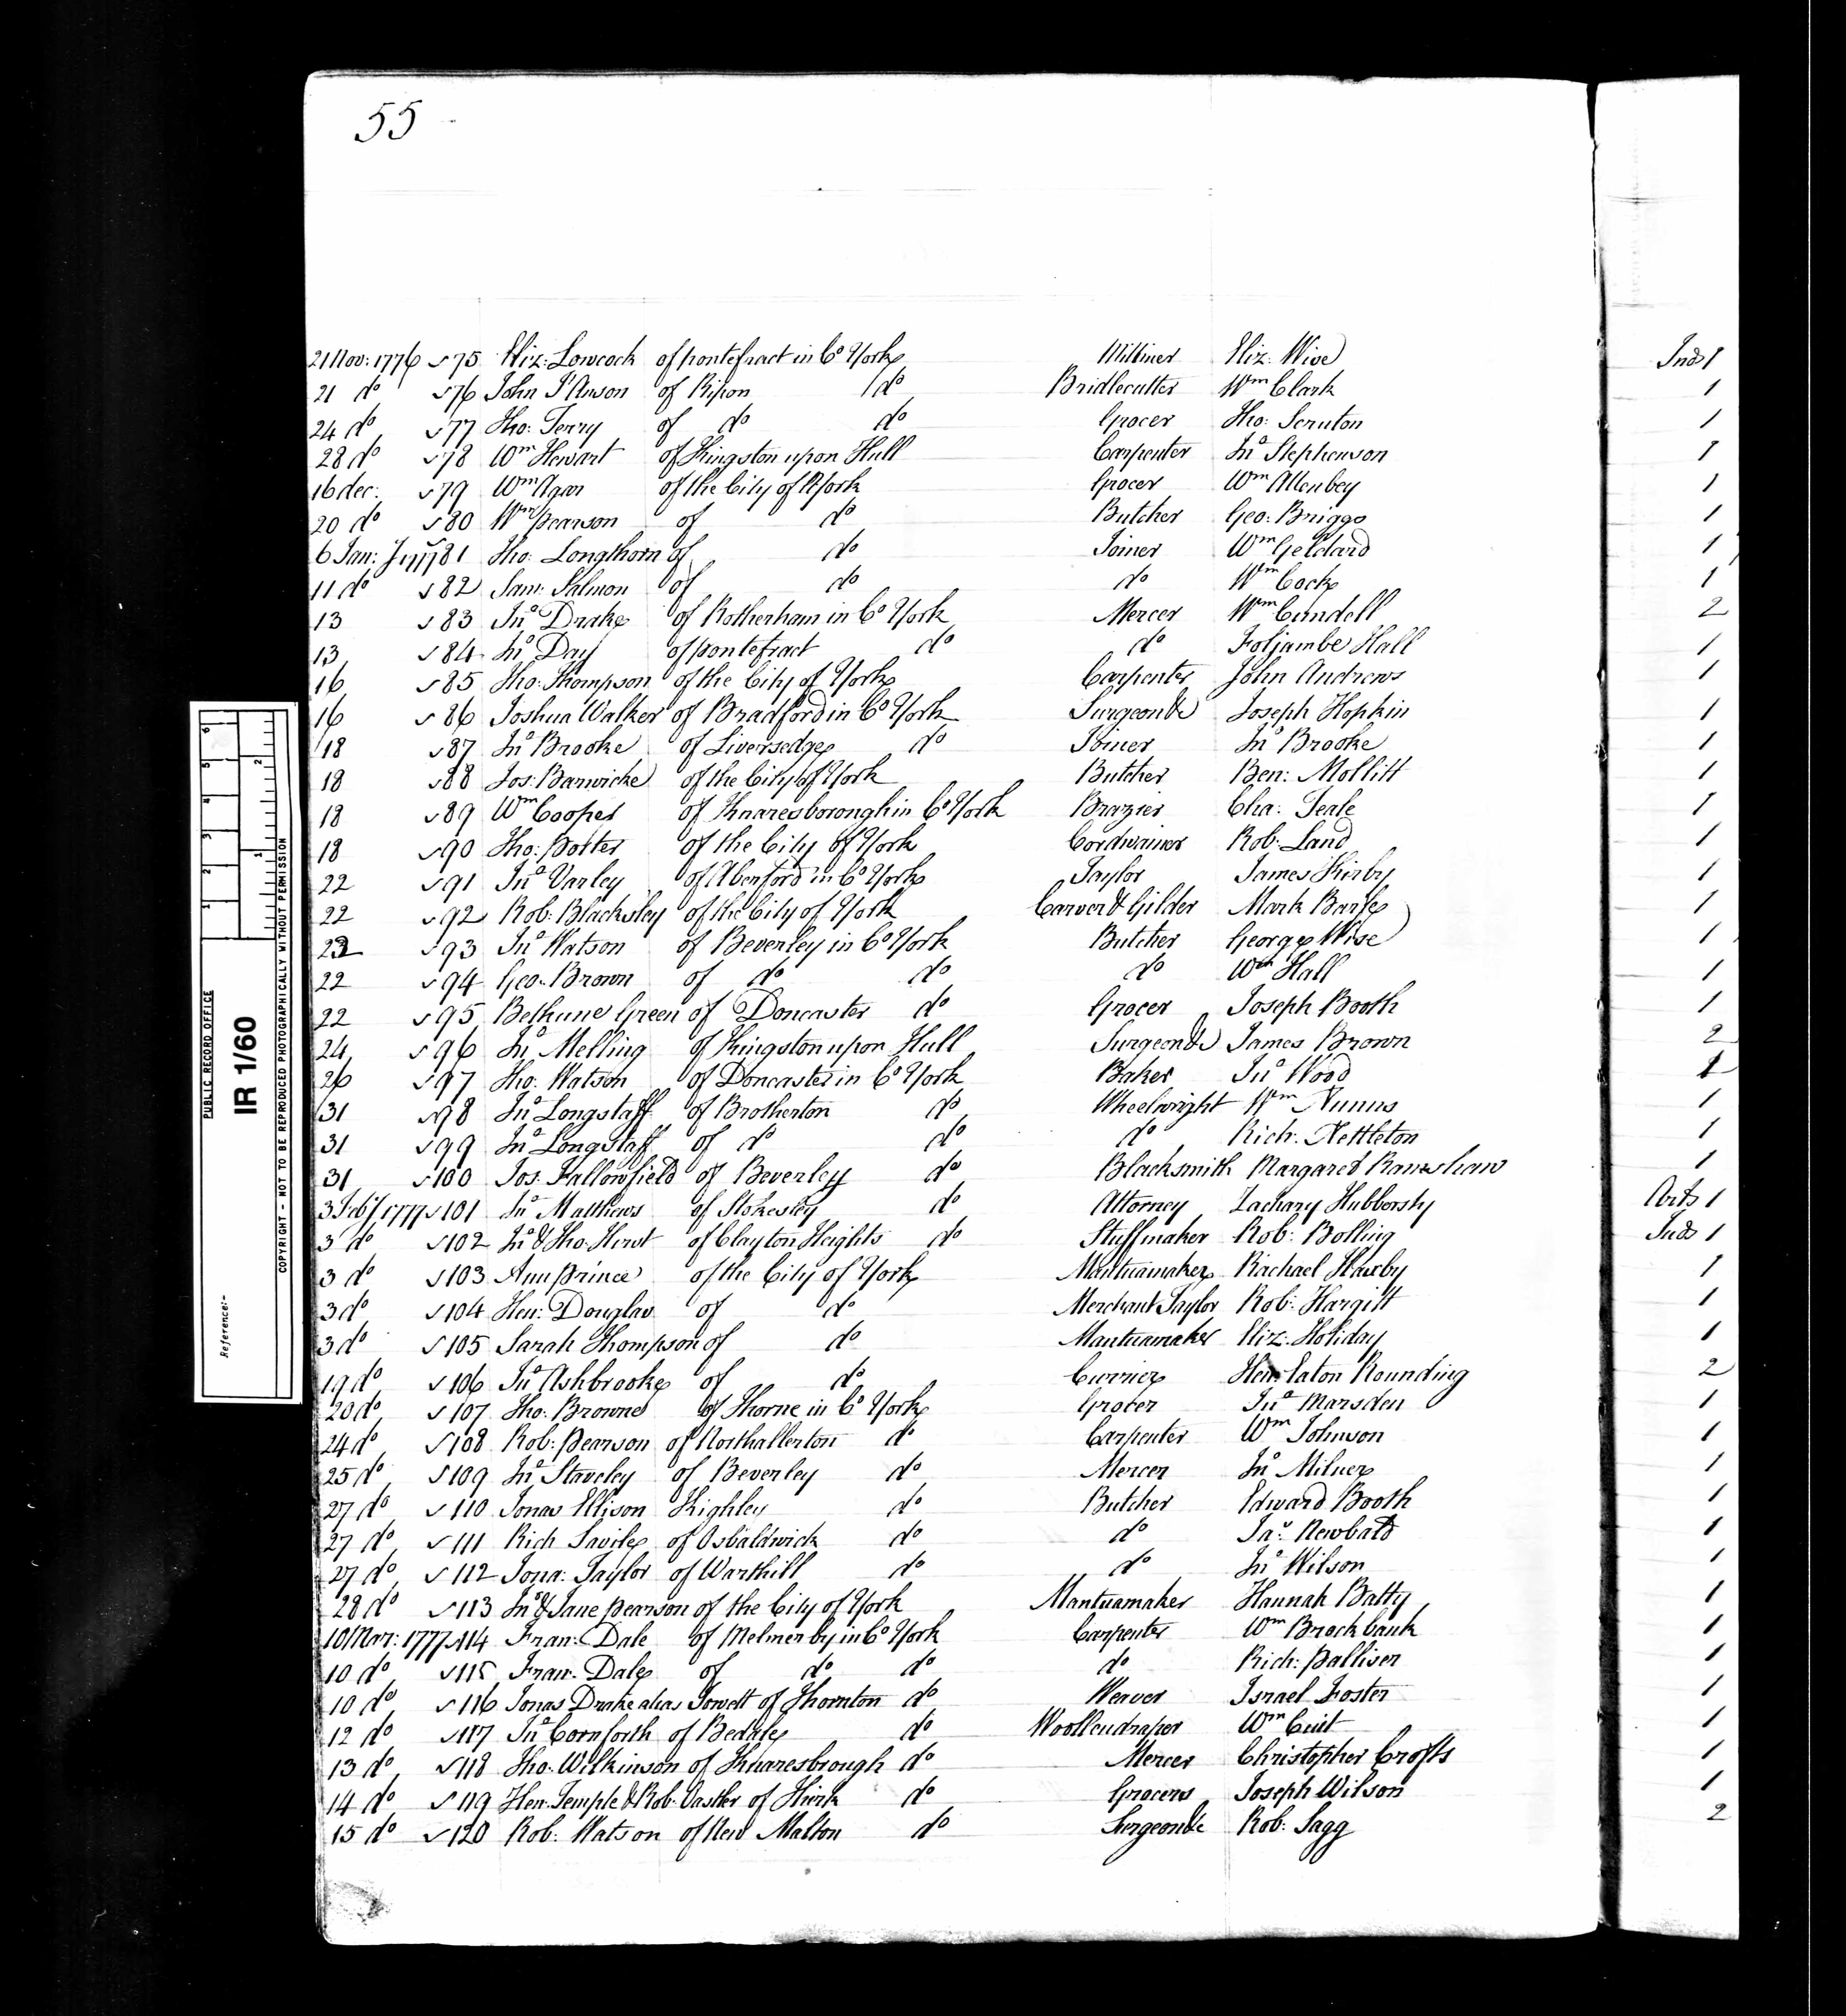 55
21 Nov: 1776 75 Eliz: Lowcock of pontefract in Co York Milliner Eliz: Wise Inds 1
21 do 76 John I'Anson of Ripon do Bridlecutter Wm Clark 1
24 do 77 Tho: Terry of do do Grocer Tho: Scruton 1
28 do 78 Wm Hewart of Kingston upon Hull Carpenter Jno Stephenson 1
16 dec: 79 Wm Agar of the City of York Grocer Wm Allenbey 1
20 do 80 Wm pearson of do Butcher Geo: Briggs 1
6 Jan: 1777 81 Tho: Longthorn of do Joiner Wm Geldard 1
11 do 82 Sam: Salmon of do do Wm Cock 1
13 83 Jno Drake of Rotherham in Co York Mercer Wm Cundell 2
13 84 Jno Day of pontefract do do Foljambe Hall 1
16 85 Tho: Thompson of the City of York Carpenter John Andrews 1
16 86 Joshua Walker of Bradford in Co York Surgeon &c Joseph Hopkin 1
18 87 Jno Brooke of Liversedge do Joiner Jno Brooke 1
18 88 Jos: Barwicke of the City of York Butcher Ben: Mollitt 1
18 89 Wm Cooper of Knaresborough in Co York Brazier Cha: Teale 1
18 90 Tho: potter of the City of York Cordwainer Rob: Land 1
22 91 Jno Varley of Aberford in Co York Taylor James Kirby 1
22 92 Rob: Blacksley of the City of York Carver & Gilder Mark Barfe 1
22 93 Jno Watson of Beverley in Co York Butcher George Wise 1
22 94 Geo: Brown of do do do Wm Hall 1
22 95 Bethune Green of Doncaster do Grocer Joseph Booth 1
24 96 Jno Melling of Kingston upon Hull Surgeon &c James Brown 2
26 97 Tho: Watson of Doncaster in Co York Baker Jno Wood 1
31 98 Jno Longstaff of Brotherton do Wheelwright Wm Nunns 1
31 99 Jno Longstaff of do do do Rich: Nettleton 1
31 100 Jos: Fallowfield of Beverley do Blacksmith Margaret 1
3 Feby 1777 101 Jno Matthews of Stokesley do Attorney Zachary Hubbersty Arts 1
3 do 102 Jno & Tho: Hirst of Clayton Heights do Stuffmaker Rob: Bolling Inds 1
3 do 103 Ann prince of the City of York Mantuamaker Rachael Haxby 1
3 do 104 Hen: Douglas of do Merchant Taylor Rob: Hargitt 1
3 do 105 Sarah Thompson of do Mantuamaker Eliz: Holiday 1
19 do 106 Jno Ashbrooke of do Currier Hen: Eaton Rounding 2
20 do 107 Tho: Browne of Thorne in Co York Grocer Jno Marsden 1
24 do 108 Rob: pearson of Northallerton do Carpenter Wm Johnson 1
25 do 109 Jno Staveley of Beverley do Mercer Jno Milner 1
27 do 110 Jonas Ellison Kighley do Butcher Edward Booth 1
27 do 111 Rich Savile of Osbaldwick do do Jas Newbald 1
27 do 112 Jona: Taylor of Warthill do do Jno Wilson 1
28 do 113 Jno & Jane pearson of the City of York Mantuamaker Hannah Batty 1
10 Mar: 1777 114 Fran: Dale of Melmerby in Co York Carpenter Wm Brockbank 1
10 do 115 Fran: Dale of do do do Rich: Palliser 1
10 do 116 Jonas Drake alias Jowett of Thornton do Weaver Israel Foster 1
12 do 117 Jno Cornforth of Bedale do Woollendraper Wm Cuit 1
13 do 118 Tho: Wilkinson of Knaresbrough do Mercer Christopher Crofts 1
14 do 119 Hen: Temple & Rob: Vastler of Hink do Grocers Joseph Wilson 1
15 do 120 Rob: Watson of New Malton do Surgeon &c Rob: Sagg 2
PUBLIC RECORD OFFICE
IR 1/60
Reference:-
COPYRIGHT - NOT TO BE REPRODUCED PHOTOGRAPHICALLY WITHOUT PERMISSION